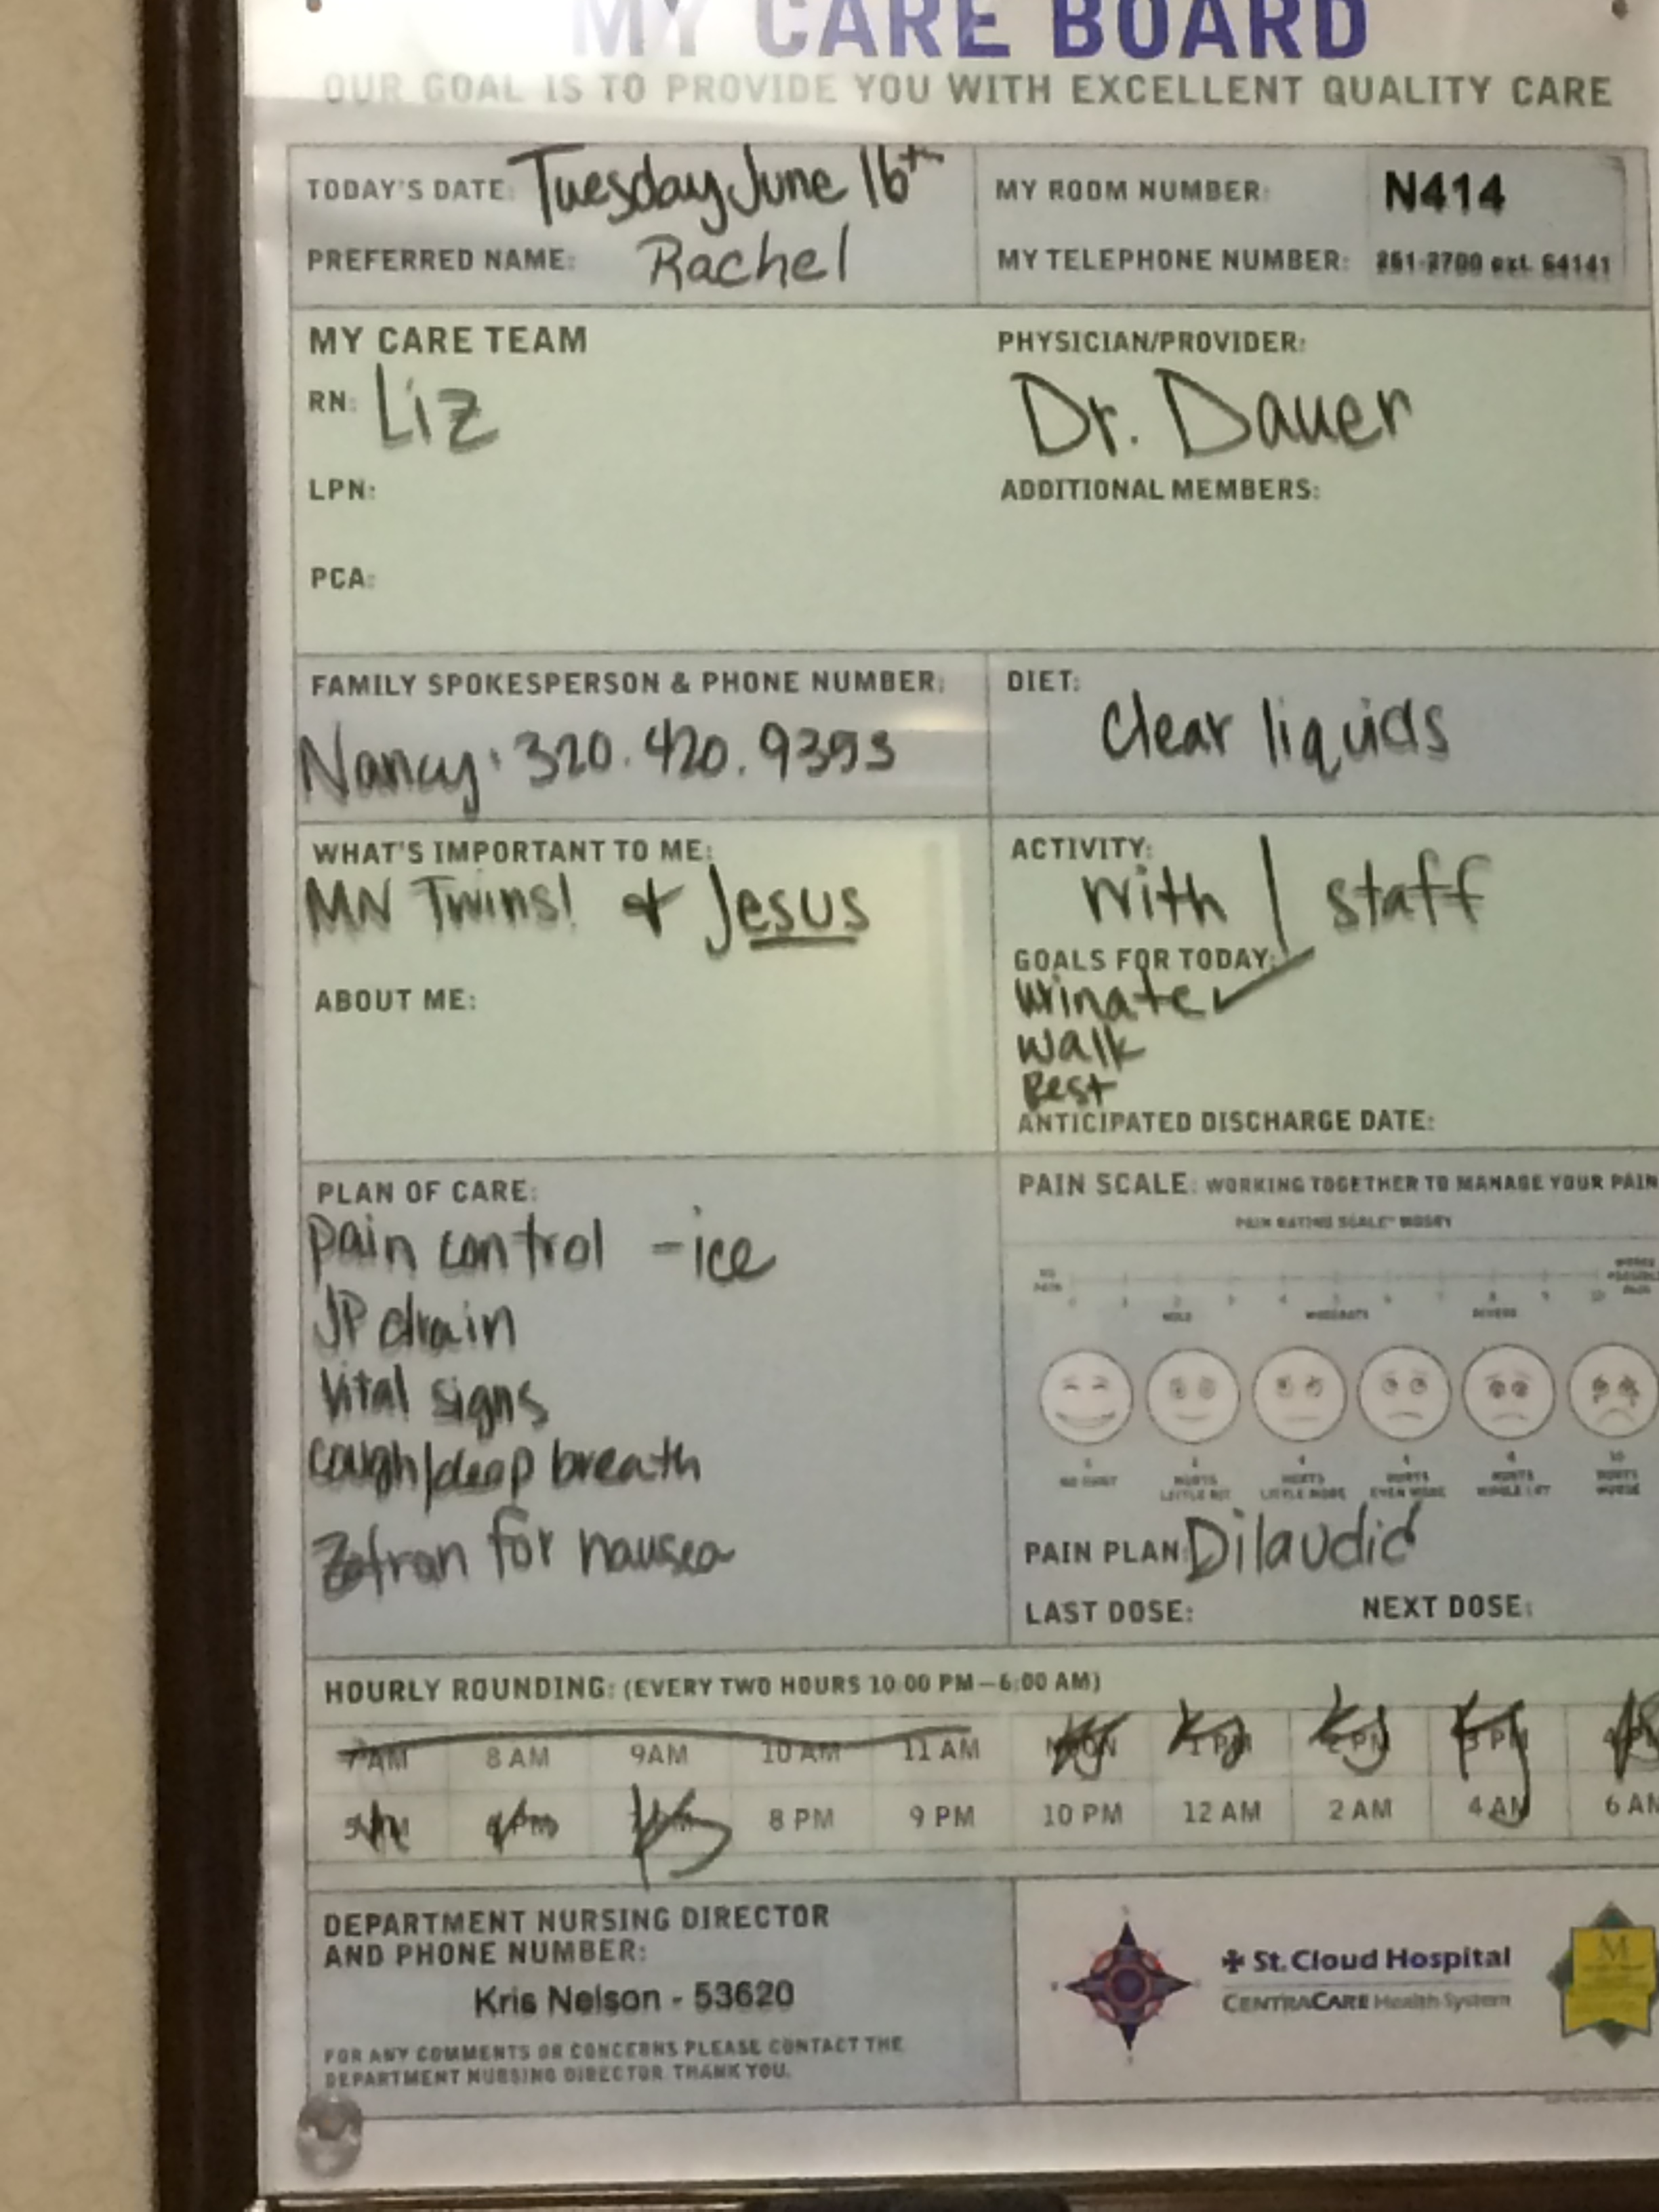 MY CARE BOARD
OUR GOAL IS TO PROVIDE YOU WITH EXCELLENT QUALITY CARE
TODAY'S DATE: Tuesday June 16th
MY ROOM NUMBER: N414
PREFERRED NAME: Rachel
MY TELEPHONE NUMBER: 251-2700 ext. 54141
MY CARE TEAM
PHYSICIAN/PROVIDER:
RN: Liz
Dr. Dauer
LPN:
ADDITIONAL MEMBERS:
PCA:
FAMILY SPOKESPERSON & PHONE NUMBER:
Nancy: 320.420.9393
DIET:
clear liquids
WHAT'S IMPORTANT TO ME:
MN Twins! & Jesus
ABOUT ME:
ACTIVITY:
with 1 staff
GOALS FOR TODAY:
urinate ✓
walk
Rest
ANTICIPATED DISCHARGE DATE:
PLAN OF CARE:
pain control - ice
JP drain
Vital signs
cough/deep breath
Zofran for nausea
PAIN SCALE: WORKING TOGETHER TO MANAGE YOUR PAIN
PAIN RATING SCALE
NO PAIN
0 1 2 3 4 5 6 7 8 9 10
MILD MODERATE SEVERE
NO HURT
HURTS LITTLE BIT
HURTS LITTLE MORE
HURTS EVEN MORE
HURTS WHOLE LOT
HURTS WORSE
PAIN PLAN: Dilaudid
LAST DOSE: NEXT DOSE:
HOURLY ROUNDING: (EVERY TWO HOURS 10:00 PM–6:00 AM)
7 AM 8 AM 9AM 10 AM 11 AM NOON 1 PM 2 PM 3 PM
8 PM 9 PM 10 PM 12 AM 2 AM 4 AM 6 AM
DEPARTMENT NURSING DIRECTOR
AND PHONE NUMBER:
Kris Nelson - 53620
FOR ANY COMMENTS OR CONCERNS PLEASE CONTACT THE
DEPARTMENT NURSING DIRECTOR. THANK YOU.
St. Cloud Hospital
CENTRACARE Health System
M